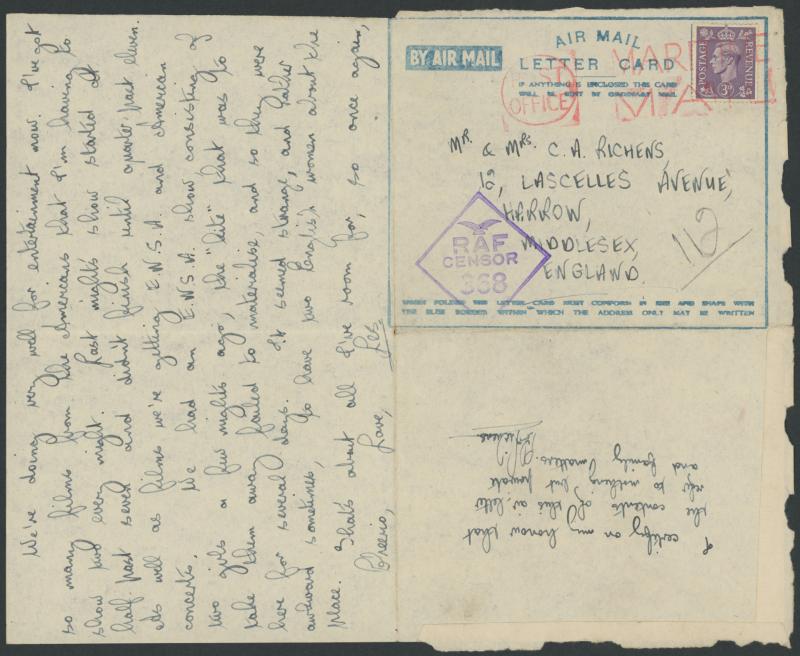 We're doing very well for entertainment now. I've got
so many films from the Americans that I'm having to
show two every night. Last night's show started at
half past seven and didn't finish until quarter past eleven.
As well as films we're getting E.N.S.A. and American
concerts. We had an E.N.S.A. show consisting of
two girls a few nights ago, the "lite" that was to
take them away failed to materialise, and so they were
here for several days. It seemed strange, and rather
awkward sometimes, to have two English women about the
place. That's about all I've room for, so once again,
Cheerio, Love,
Les
BY AIR MAIL
AIR MAIL
LETTER CARD
IF ANYTHING IS ENCLOSED THIS CARD
WILL BE SENT BY ORDINARY MAIL
POST
OFFICE
MAIL
POSTAGE
REVENUE
3D
Mr. & Mrs. C. A. RICHENS,
LASCELLES AVENUE,
HARROW,
MIDDLESEX,
ENGLAND.
112
RAF
CENSOR
368
WHEN FOLDED THE LETTER CARD MUST CONFORM IN SIZE AND SHAPE WITH
THE BLUE BORDER WITHIN WHICH THE ADDRESS ONLY MAY BE WRITTEN
I certify on my honour that
the contents of this air letter
refer to nothing but private
and family matters.
Richens